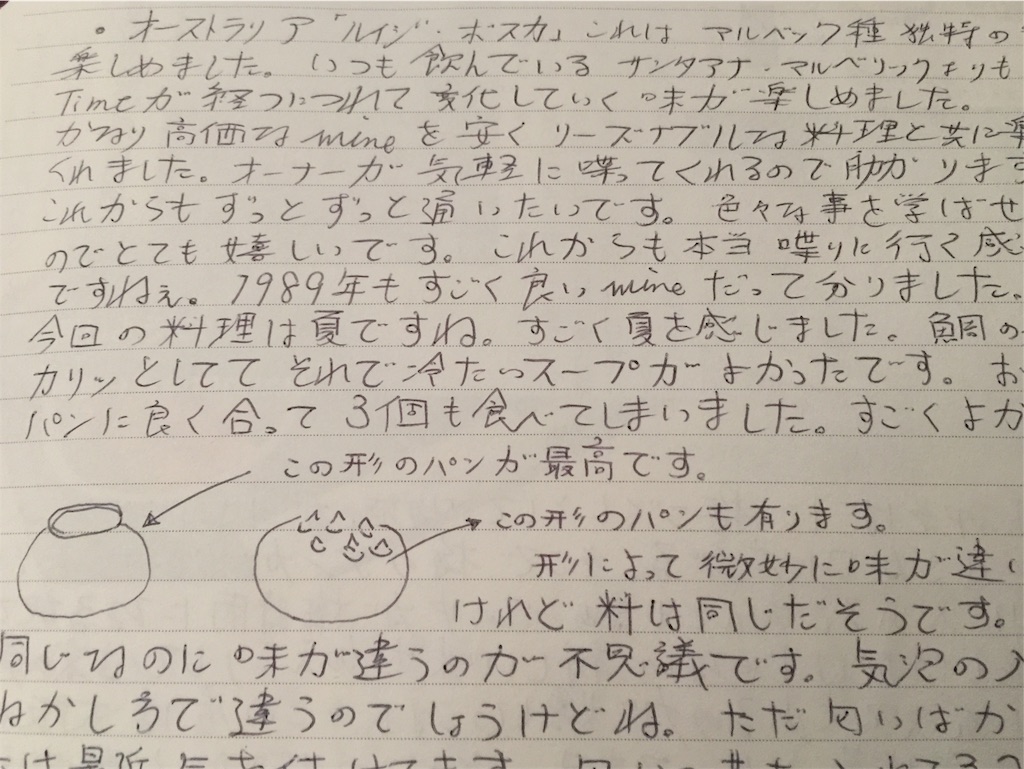 ・オーストラリア「ルイジ・ボスカ」これは マルベック種 独特の
楽しめました。いつも 飲んでいる サンタアナ・マルベリックよりも
Timeが 経つにつれて 変化していく 味が 楽しめました。
かなり 高価な mineを 安く リーズナブルな 料理と共に
くれました。オーナーが 気軽に 喋ってくれるので 助かります
これからも ずっと ずっと 通いたいです。 色々な事を 学ばせ
のでとても 嬉しいです。これからも 本当 喋りに 行く 感じ
ですねぇ。1989年も すごく 良い mine だって 分りました。
今回の 料理は夏ですね。すごく 夏を 感じました。鯛の
カリッとしてて それで 冷たいスープが よかったです。お
パンに 良く 合って 3個も 食べてしまいました。すごく よか
この形のパンが最高です。
この形のパンも有ります。
形によって 微妙に味が違い
けれど 料は同じだそうです。
同じなのに 味が違うのが 不思議です。気泡の入
ねかし方で 違うのでしょうけどね。ただ 匂いばか
は最近 気を付けてます。